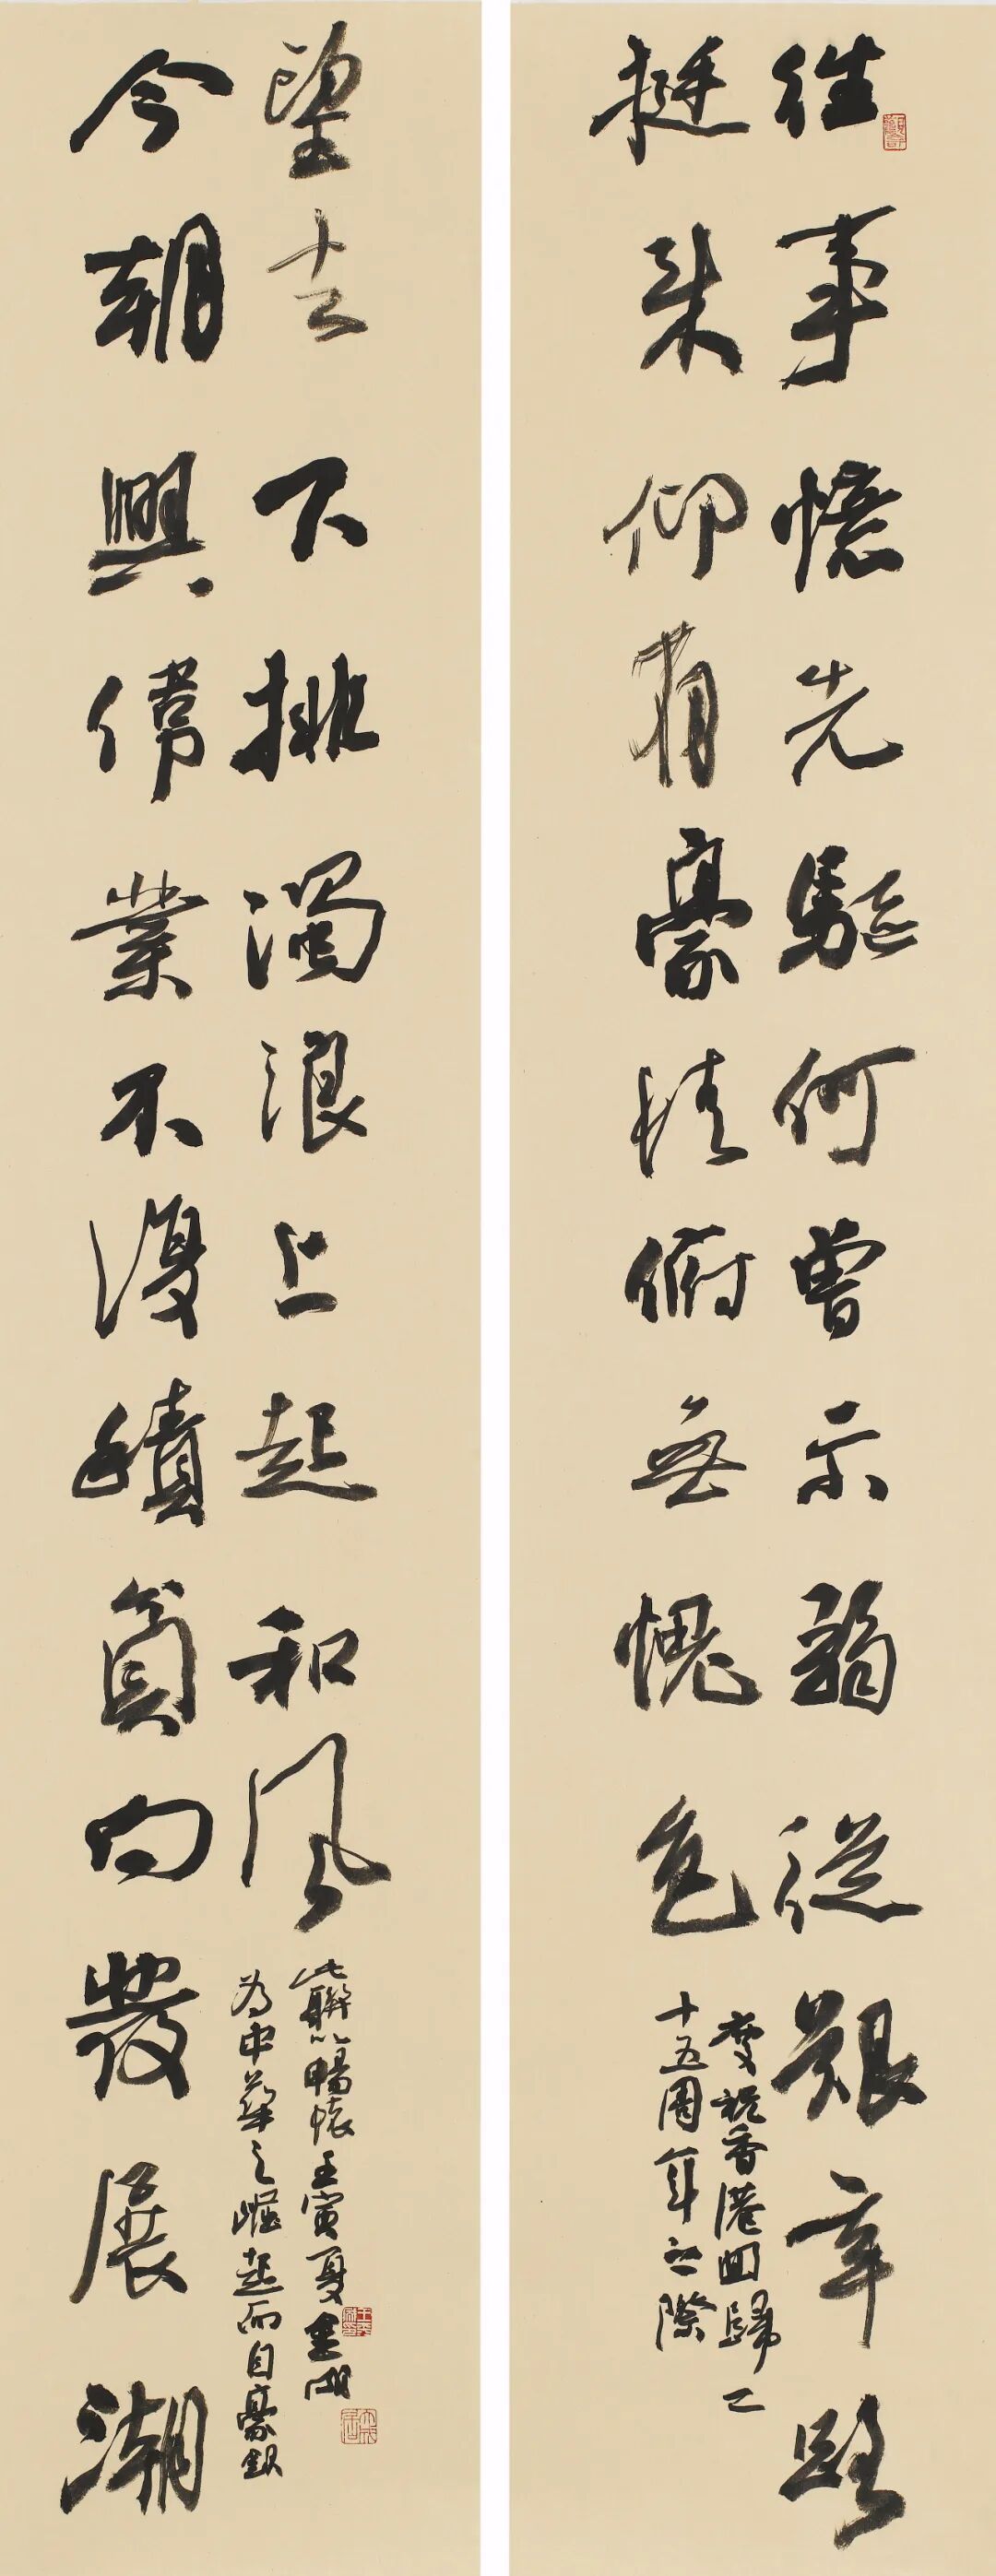 往事憶先驅何曾示弱從艱辛路
挺來仰有豪情俯無愧色
慶祝香港回歸二
十五周年之際
今朝興偉業不復積貧向發展潮
望去下排濁浪上起和風
為中華之崛起而自豪
此聯以暢懷壬寅夏